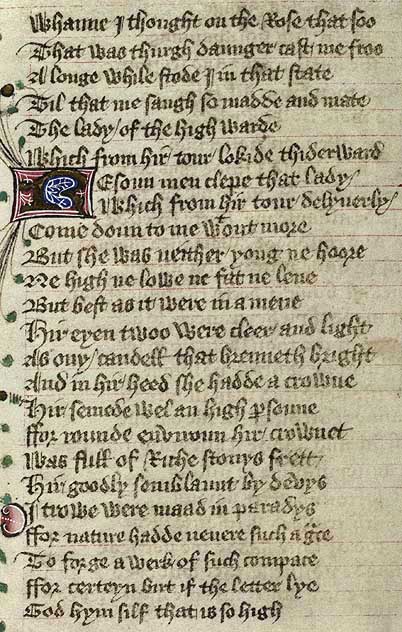 Whanne I thought on the Rose that soo
That was thurgh daunger cast me froo
A longe while stode I in that state
Til that me saugh so madde and mate
The lady / of the high warde
Which from hir tour lokide thiderward
REsoun men clepe that lady /
Which from hir tour delyuerly /
Come doun to me wᵗout more
But she was neither yong ne hoore
Ne high ne lowe ne fat ne lene
But best as it were in a mene
Hir eyen twoo were cleer and light
As ony / candell that brenneth bright
And in hir heed she hadde a crowne
Hir semede wel an high ꝑsoune
ffor rounde enviroun hir crownet
Was full of Riche stonys frett
Hir goodly semblaunt by devys
I trowe were maad in paradys
ffor nature hadde neuere such a gͣce
To forge a werk of such compace
ffor certeyn but if the letter lye
God hym silf that is so high